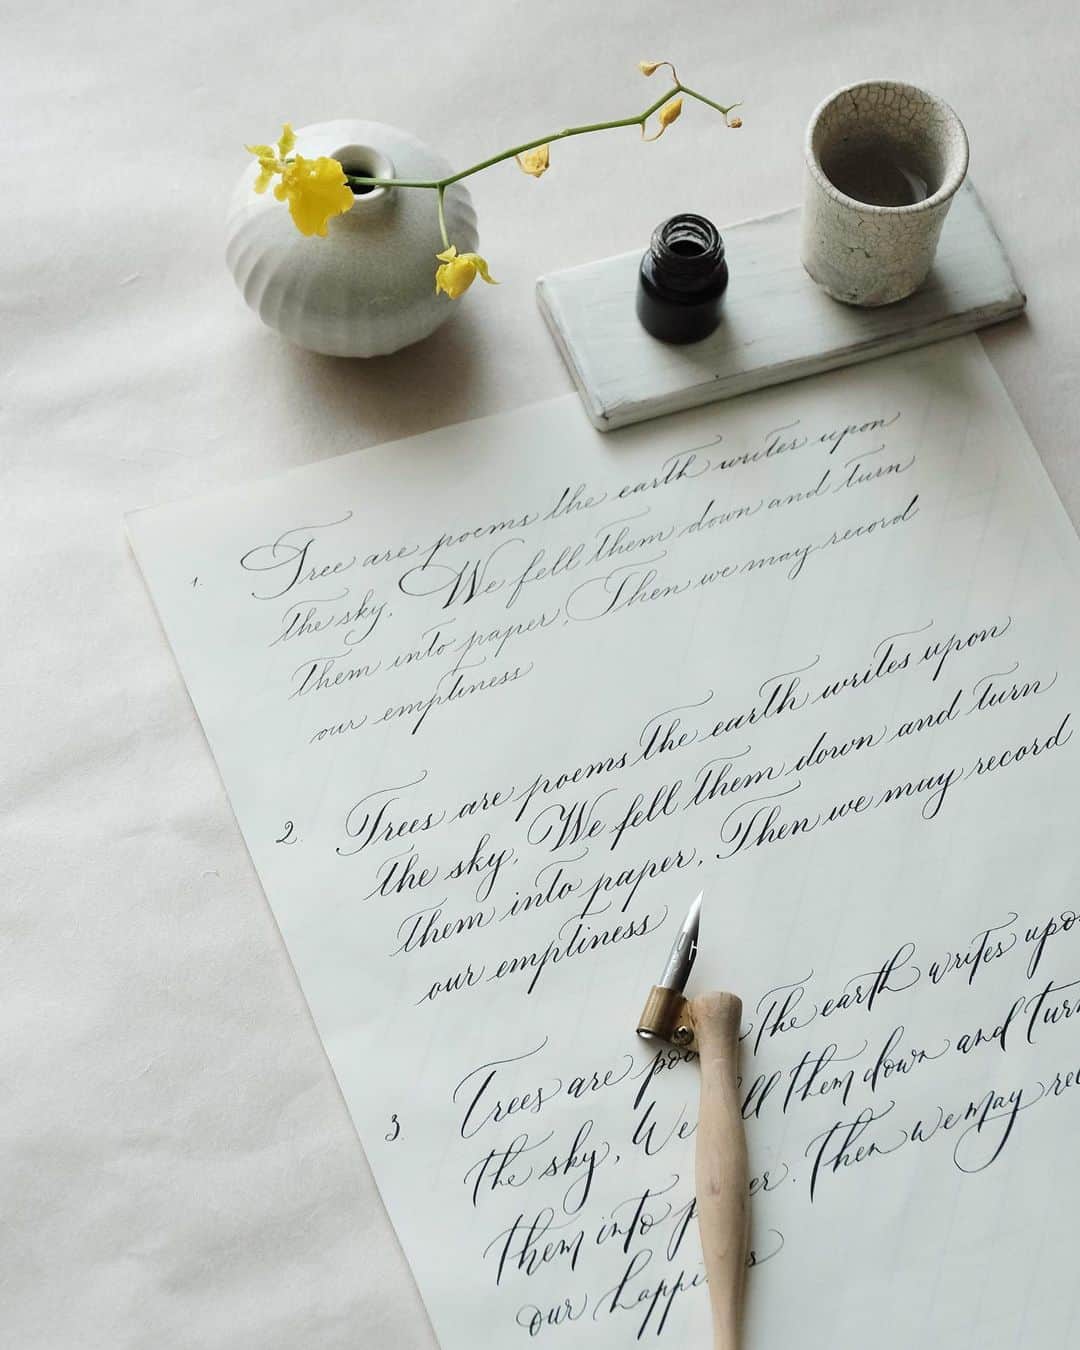 1. Tree are poems the earth writes upon
the sky. We fell them down and turn
them into paper. Then we may record
our emptiness
2. Trees are poems the earth writes upon
the sky. We fell them down and turn
them into paper. Then we may record
our emptiness
3. Trees are the earth writes
the sky, We them down and
them into Then we may
our